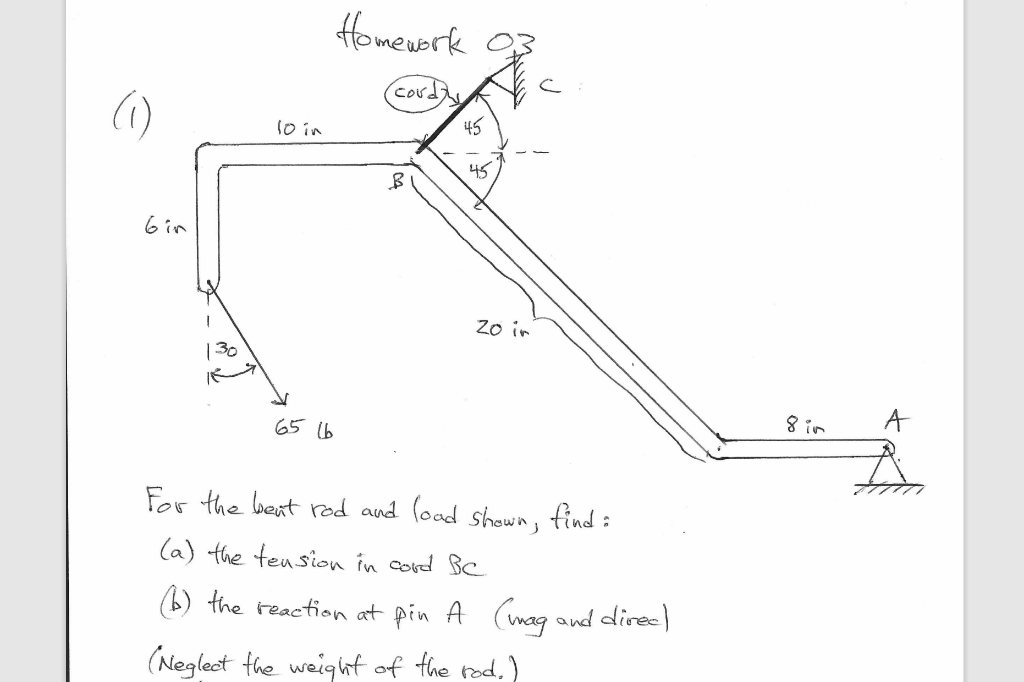 Homework 03
(1)
cord
C
10 in
45
45
B
6 in
20 in
30
65 lb
8 in
A
For the bent rod and load shown, find:
(a) the tension in cord BC
(b) the reaction at pin A (mag and direc)
(Neglect the weight of the rod.)